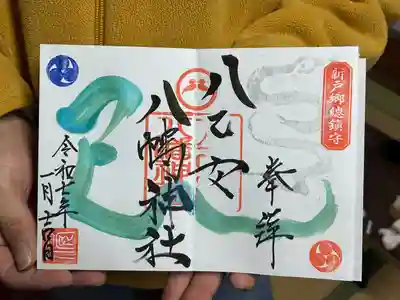 新戸郷總鎮守
奉拝
八乙女
八幡神社
令和七年
一月